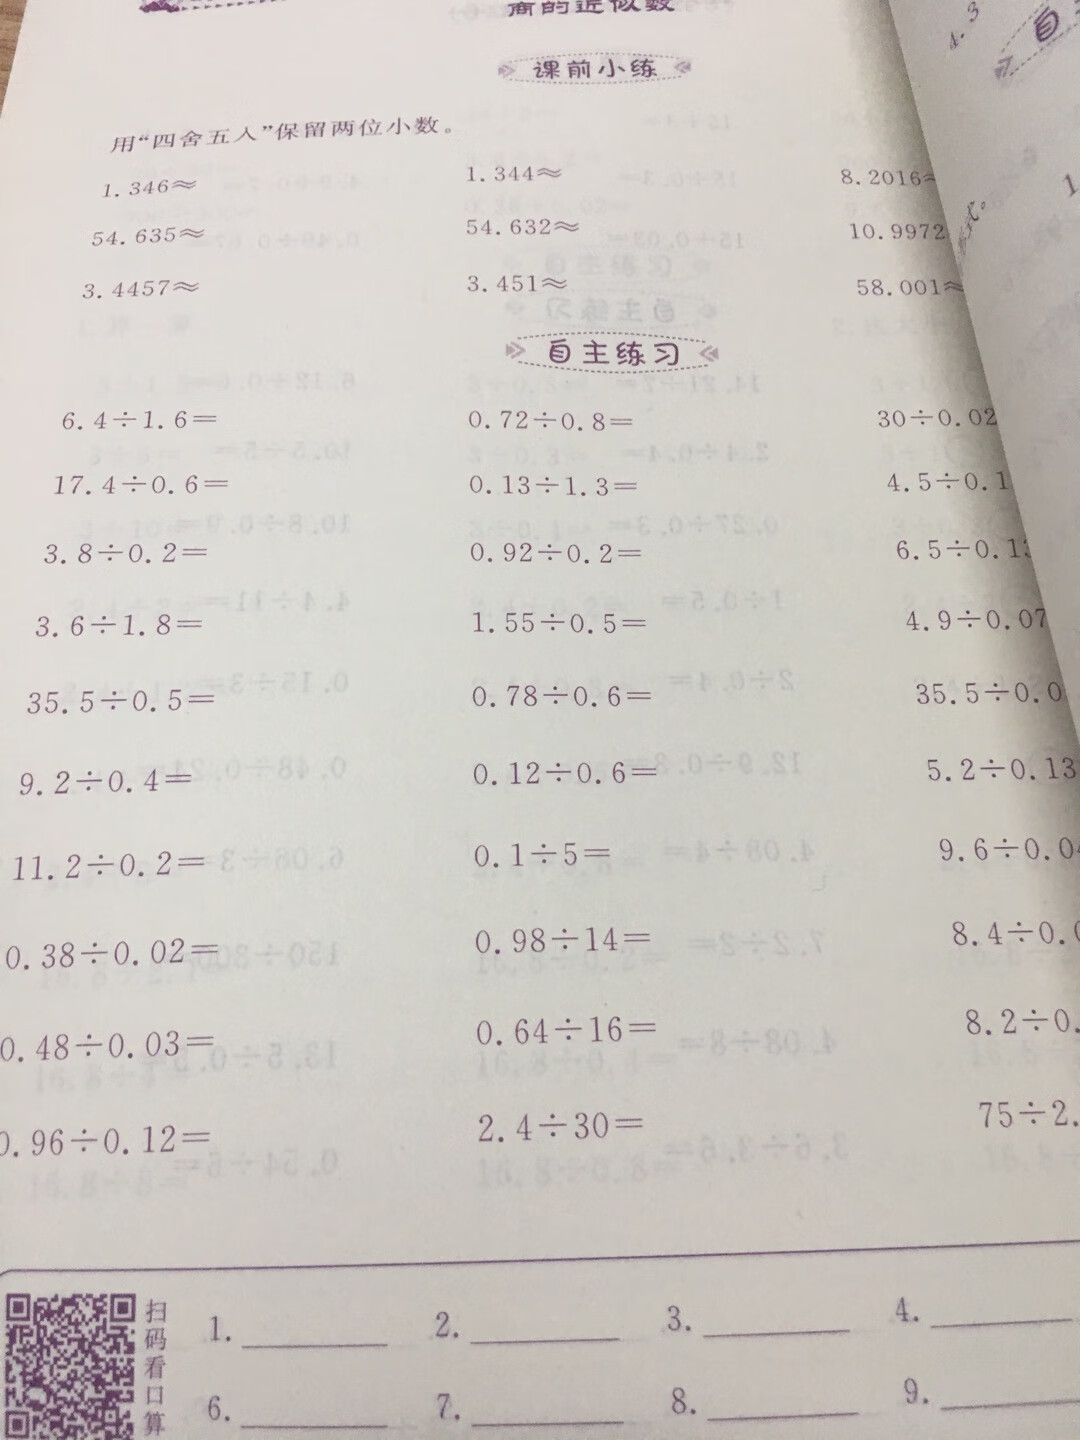 商的近似数
课前小练
用“四舍五入”保留两位小数。
1.346≈ 1.344≈ 8.2016≈
54.635≈ 54.632≈ 10.9972
3.4457≈ 3.451≈ 58.001≈
自主练习
6.4÷1.6= 0.72÷0.8= 30÷0.02
17.4÷0.6= 0.13÷1.3= 4.5÷0.1
3.8÷0.2= 0.92÷0.2= 6.5÷0.13
3.6÷1.8= 1.55÷0.5= 4.9÷0.07
35.5÷0.5= 0.78÷0.6= 35.5÷0.0
9.2÷0.4= 0.12÷0.6= 5.2÷0.13
11.2÷0.2= 0.1÷5= 9.6÷0.04
0.38÷0.02= 0.98÷14= 8.4÷0.0
0.48÷0.03= 0.64÷16= 8.2÷0.
0.96÷0.12= 2.4÷30= 75÷2.
扫码看口算
1. 2. 3. 4.
6. 7. 8. 9.
4.3
自
1